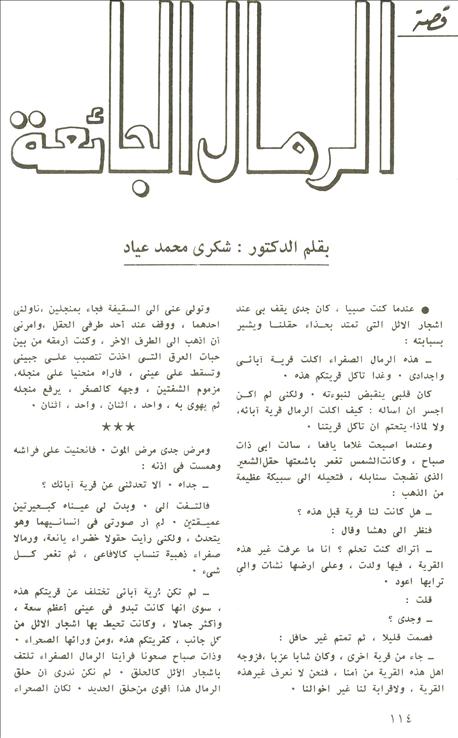 قصة
الرمال الجائعة
بقلم الدكتور : شكرى محمد عياد
● عندما كنت صبيا ، كان جدى يقف بى عند
اشجار الاثل التى تمتد بحذاء حقلنا ويشير
بسبابته :
ـ هذه الرمال الصفراء اكلت قرية آبائى
واجدادى ٠ وغدا تاكل قريتكم هذه ٠
كان قلبى ينقبض لنبوءته ٠ ولكنى لم اكن
اجسر ان اساله : كيف اكلت الرمال قرية آبائه،
ولا لماذا٠ يتحتم ان تاكل قريتنا ٠
وعندما اصبحت غلاما يافعا ، سالت ابى ذات
صباح ، وكانت الشمس تغمر باشعتها حقل الشعير
الذى نضجت سنابله ، فتحيله الى سبيكة عظيمة
من الذهب :
ـ هل كانت لنا قرية قبل هذه ؟
فنظر الى دهشا وقال :
ـ أتراك كنت تحلم ؟ انا ما عرفت غير هذه
القرية ، فيها ولدت ، وعلى ارضها نشات والى
ترابها اعود ٠
قلت :
ـ وجدى ؟
فصمت قليلا ، ثم تمتم غير حافل :
ـ جاء من قرية اخرى ، وكان شابا عزبا ،فزوجه
اهل هذه القرية من أمنا ، فنحن لا نعرف غيرهذه
القرية ، ولاقرابة لنا غير اخوالنا ٠
وتولى عنى الى السقيفة فجاء بمنجلين ،ناولنى
احدهما ، ووقف عند أحد طرفى الحقل ،وامرنى
أن اذهب الى الطرف الاخر ، وكنت أرمقه من بين
حبات العرق التى اخذت تتصبب على جبينى
وتسقط على عينى ، فاراه منحنيا على منجله،
مزموم الشفتين ، وجهه كالصخر ، يرفع منجله
ثم يهوى به ، واحد ، اثنان ، واحد ، اثنان ٠
★★★
ومرض جدى مرض الموت ٠ فانحنيت على فراشه
وهمست فى اذنه :
ـ جداه ٠ الا تحدثنى عن قرية آبائك ؟
فالتفت الى ٠ وبدت لى عيناه كبحيرتين
عميقتين ٠ لم أر صورتى فى انسانيهما وهو
يتحدث ، ولكنى رأيت حقولا خضراء يانعة، ورمالا
صفراء ذهبية تنساب كالافاعى ، ثم تغمر كل
شىء ٠
ـ لم تكن قرية آبائى تختلف عن قريتكم هذه
، سوى انها كانت تبدو فى عينى أعظم سعة ،
وأكثر جمالا ، وكانت تحيط بها اشجار الاثل من
كل جانب ، كقريتكم هذه ،ومن ورائها الصحراء ٠
وذات صباح صحونا فرأينا الرمال الصفراء تلتف
باشجار الاثل كالحلق ٠ لم نكن ندرى أن حلق
الرمال هذا أقوى من حلق الحديد ٠ لكان الصحراء
١١٤